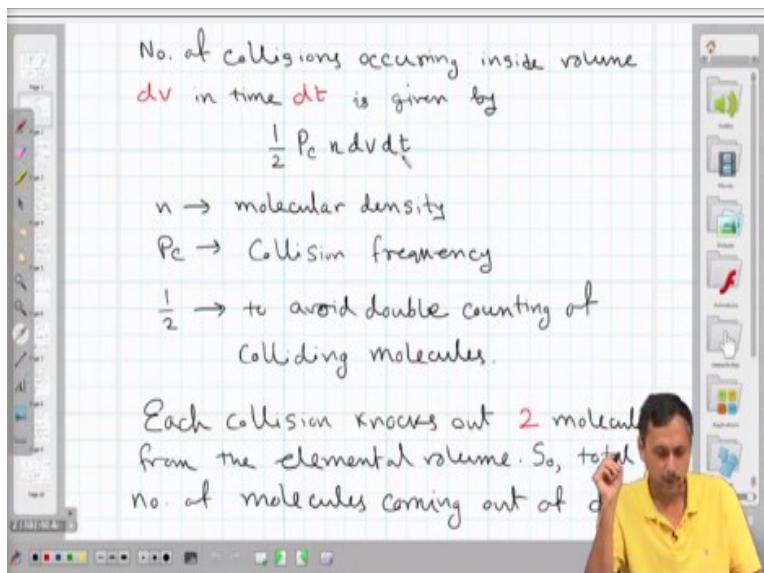 No. of collisions occuring inside volume
dv in time dt is given by
1/2 Pc n dv dt
n → molecular density
Pc → Collision frequency
1/2 → to avoid double counting of
colliding molecules.
Each collision knocks out 2 molecul
from the elemental volume. So, total
no. of molecules coming out of d